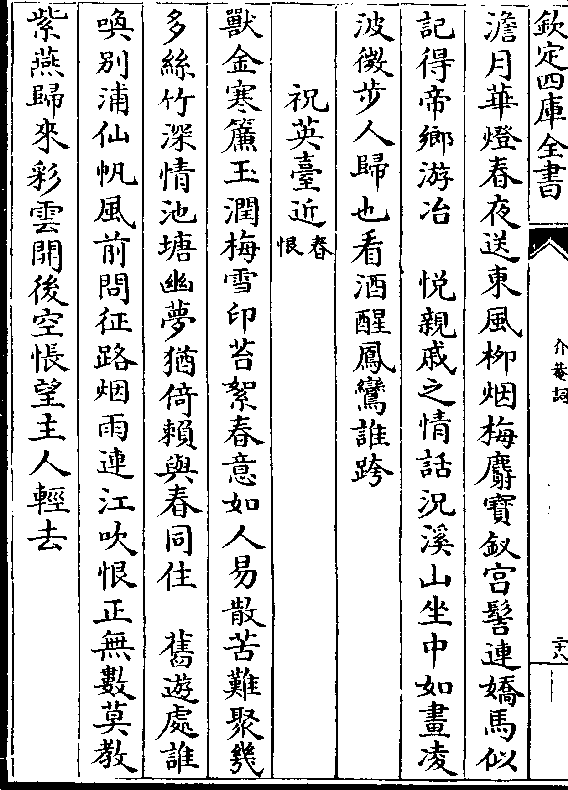 欽定四庫全書
介菴詞
二十八
澹月華燈春夜送東風栁烟梅麝寳釵宫髻連嬌馬似
記得帝鄉游冶　悦親戚之情話況溪山坐中如畫凌
波微步人歸也看酒醒鳳鸞誰跨
祝英臺近春恨
獸金寒簾玉潤梅雪印苔絮春意如人易散苦難聚幾
多絲竹深情池塘幽夢猶倚賴與春同住　舊遊處誰
喚别浦仙帆風前問征路烟雨連江吹恨正無數莫教
紫燕歸來彩雲開後空悵望主人輕去